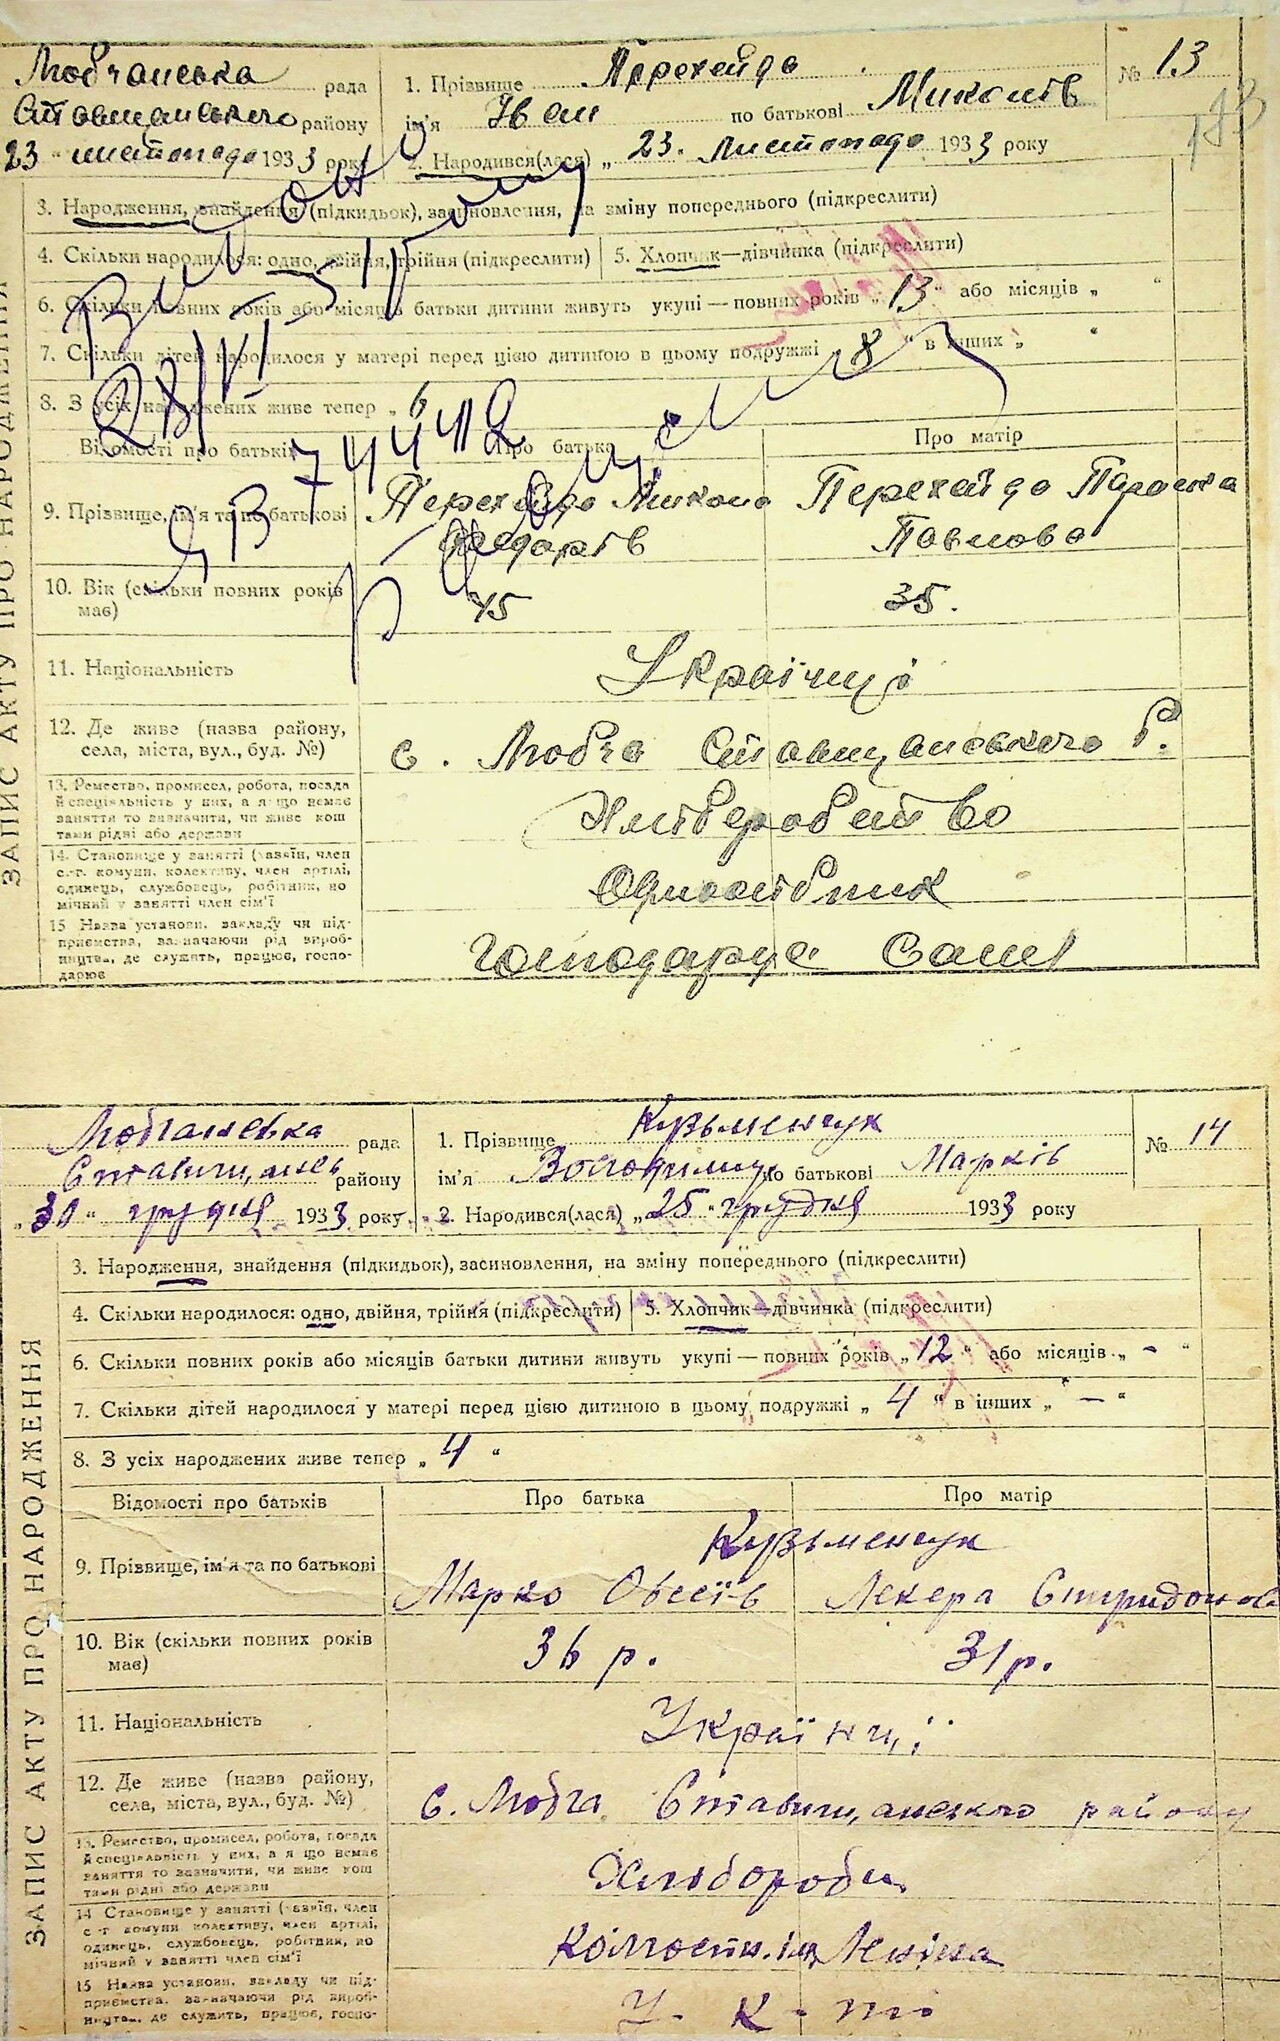 Любчанська рада
Ставищанського району
23 " листопада 1933 року
1. Прізвище Перехейда
ім'я Іван по батькові Миколів
№ 13
2. Народився(лася) „ 23. Листопада 1933 року
ЗАПИС АКТУ ПРО НАРОДЖЕННЯ
3. Народження, знайдення (підкидьок), засиновлення, на зміну попереднього (підкреслити)
4. Скільки народилося: одно, двійня, трійня (підкреслити) 5. Хлопчик—дівчинка (підкреслити)
6. Скільки повних років або місяців батьки дитини живуть укупі — повних років „ 13 " або місяців „ "
7. Скільки дітей народилося у матері перед цією дитиною в цьому подружжі 8 " в інших „ "
8. З усіх народжених живе тепер „ 6
Відомості про батьків Про батька Про матір
9. Прізвище, ім'я та по батькові Перехейда Микола Перехейда Параска
Федорів Павлова
10. Вік (скільки повних років має) 45 35.
11. Національність Українці
12. Де живе (назва району, села, міста, вул., буд. №) с. Любча Ставищанського Р.
13. Ремество, промисел, робота, посада й спеціяльність у них, а якщо немає заняття то зазначити, чи живе коштами рідні або держави
Хліберобство
14. Становище у занятті (хазяїн, член с.-г. комуни, колективу, член артілі, одинець, службовець, робітник, помічний у занятті член сім'ї
Одноосібник
15 Назва установи, закладу чи підприємства, зазначаючи рід виробництва, де служить, працює, господарює
Господарує Самі
28/VI
744412
Любчанська рада
Ставищансь району
„ 30 " грудня 1933 року
1. Прізвище Кузьменчук
ім'я Володимир по батькові Марків
№ 14
2. Народився(лася) „ 25 " грудня 1933 року
ЗАПИС АКТУ ПРО НАРОДЖЕННЯ
3. Народження, знайдення (підкидьок), засиновлення, на зміну попереднього (підкреслити)
4. Скільки народилося: одно, двійня, трійня (підкреслити) 5. Хлопчик—дівчинка (підкреслити)
6. Скільки повних років або місяців батьки дитини живуть укупі — повних років „ 12 " або місяців „ - "
7. Скільки дітей народилося у матері перед цією дитиною в цьому подружжі „ 4 " в інших „ — "
8. З усіх народжених живе тепер „ 4 "
Відомості про батьків Про батька Про матір
Кузьменчук
9. Прізвище, ім'я та по батькові Марко Овсеїв Лекера Спиридонова
10. Вік (скільки повних років має) 36 р. 31 р.
11. Національність Українці
12. Де живе (назва району, села, міста, вул., буд. №) с. Любча Ставищанського району
13. Ремество, промисел, робота, посада й спеціяльність у них, а якщо немає заняття то зазначити, чи живе коштами рідні або держави
Хлібороби
14 Становище у занятті (хазяїн, член с.-г. комуни колективу, член артілі, одинець, службовець, робітник, помічний у занятті член сім'ї
Колгоспн. ім. Леніна
15 Назва установи, закладу чи підприємства, зазначаючи рід виробництва, де служить, працює, госпо-
У к-ті